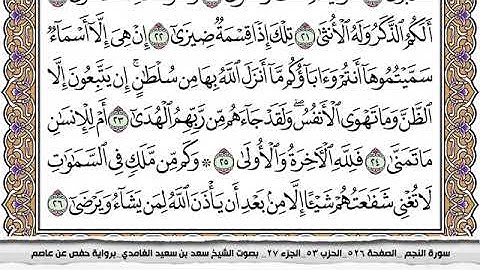 أَلَكُمُ ٱلذَّكَرُ وَلَهُ ٱلْأُنثَىٰ ٢١ تِلْكَ إِذًا قِسْمَةٌ ضِيزَىٰٓ ٢٢ إِنْ هِىَ إِلَّآ أَسْمَآءٌ
سَمَّيْتُمُوهَآ أَنتُمْ وَءَابَآؤُكُم مَّآ أَنزَلَ ٱللَّهُ بِهَا مِن سُلْطَٰنٍ ۚ إِن يَتَّبِعُونَ إِلَّا
ٱلظَّنَّ وَمَا تَهْوَى ٱلْأَنفُسُ ۖ وَلَقَدْ جَآءَهُم مِّن رَّبِّهِمُ ٱلْهُدَىٰٓ ٢٣ أَمْ لِلْإِنسَٰنِ
مَا تَمَنَّىٰ ٢٤ فَلِلَّهِ ٱلْءَاخِرَةُ وَٱلْأُولَىٰ ٢٥ ۞ وَكَم مِّن مَّلَكٍ فِى ٱلسَّمَٰوَٰتِ
لَا تُغْنِى شَفَٰعَتُهُمْ شَيْـًٔا إِلَّا مِنۢ بَعْدِ أَن يَأْذَنَ ٱللَّهُ لِمَن يَشَآءُ وَيَرْضَىٰٓ ٢٦
سورة النجم _الصفحة ٥٢٦_ الحزب ٥٣_ الجزء ٢٧_ بصوت الشيخ سعد بن سعيد الغامدي_برواية حفص عن عاصم